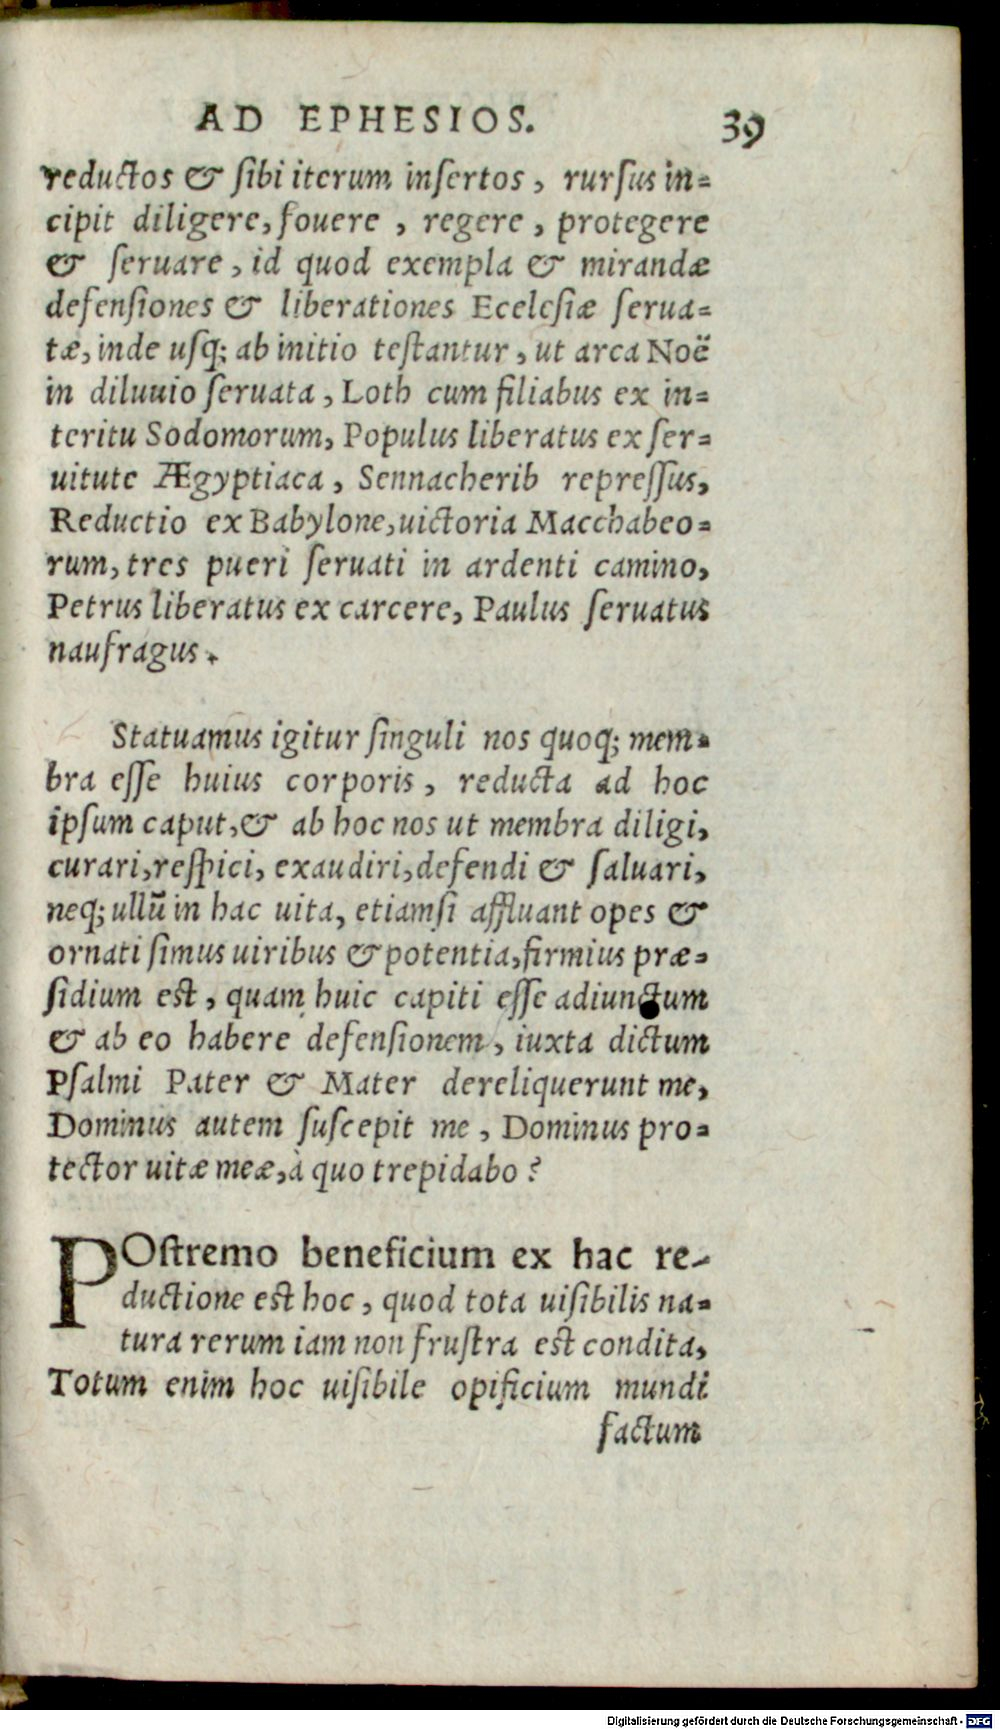 AD EPHESIOS. 39
reductos & ſibi iterum inſertos, rurſus in=
cipit diligere, fouere, regere, protegere
& ſeruare, id quod exempla & mirandæ
defenſiones & liberationes Ecelcſiæ ſerua=
tæ, inde uſq; ab initio teſtantur, ut arca Noë
in diluuio ſeruata, Loth cum filiabus ex in=
teritu Sodomorum, Populus liberatus ex ſer=
uitute Ægyptiaca, Sennacherib repreſſus,
Reductio ex Babylone, uictoria Macchabeo=
rum, tres pueri ſeruati in ardenti camino,
Petrus liberatus ex carcere, Paulus ſeruatus
naufragus.
Statuamus igitur ſinguli nos quoq; mem=
bra eſſe huius corporis, reducta ad hoc
ipſum caput, & ab hoc nos ut membra diligi,
curari, reſpici, exaudiri, defendi & ſaluari,
neq; ullū in hac uita, etiamſi affluant opes &
ornati ſimus uiribus & potentia, firmius præ=
ſidium est, quam huic capiti eſſe adiunctum
& ab eo habere defenſionem, iuxta dictum
Pſalmi Pater & Mater dereliquerunt me,
Dominus autem ſuſcepit me, Dominus pro=
tector uitæ meæ, à quo trepidabo?
POſtremo beneficium ex hac re-
ductione est hoc, quod tota uiſibilis na=
tura rerum iam non fruſtra est condita,
Totum enim hoc uiſibile opificium mundi
factum
Digitalisierung gefördert durch die Deutsche Forschungsgemeinschaft - DFG